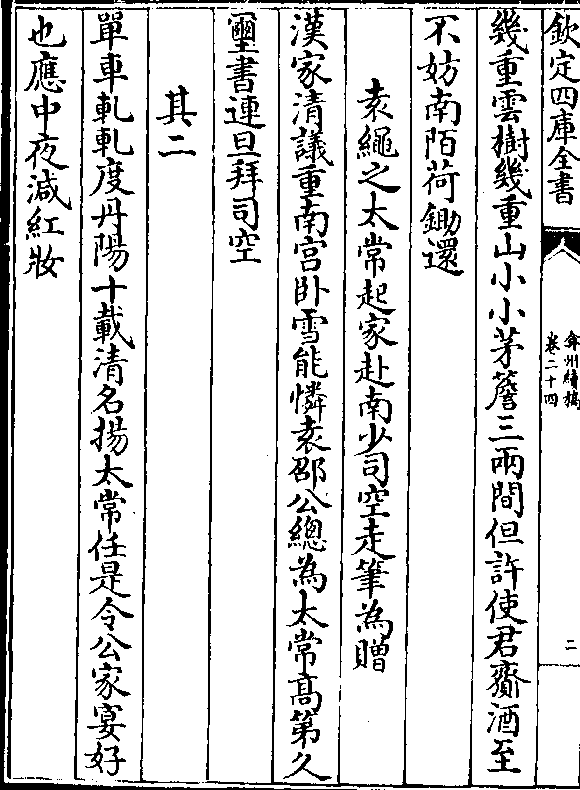 欽定四庫全書
弇州續稿
卷二十四
二
幾重雲樹幾重山小小茅簷三兩間但許使君齎酒至
不妨南陌荷鋤還
袁繩之太常起家赴南少司空走筆為贈
漢家清議重南宫卧雪能憐袁邵公總為太常髙第久
璽書連旦拜司空
其二
單車軋軋度丹陽十載清名揚太常任是令公家宴好
也應中夜減紅妝